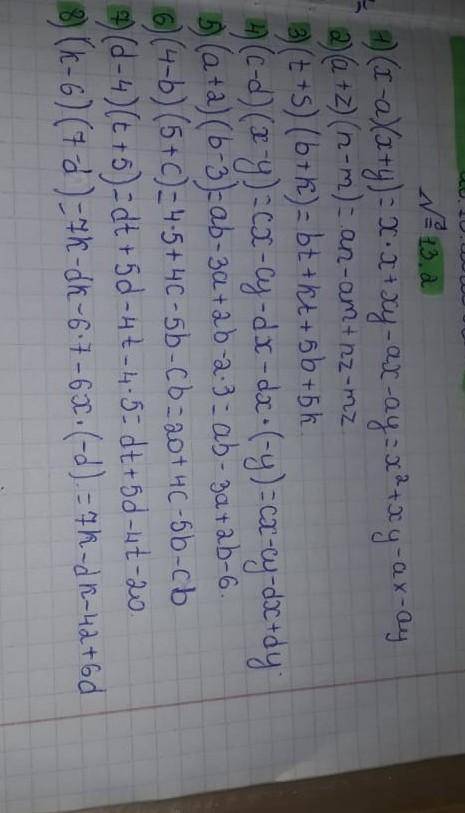 № 13.2
1) (x-a)(x+y)=x·x+xy-ax-ay=x²+xy-ax-ay
2) (a+z)(n-m)=an-am+nz-mz
3) (t+s)(b+k)=bt+kt+5b+5k
4) (c-d)(x-y)=cx-cy-dx-dx·(-y)=cx-cy-dx+dy.
5) (a+2)(b-3)=ab-3a+2b-2·3=ab-3a+2b-6.
6) (4-b)(5+c)=4·5+4c-5b-cb=20+4c-5b-cb
7) (d-4)(t+5)=dt+5d-4t-4·5=dt+5d-4t-20.
8) (k-6)(7-d)=7k-dk-6·7-6x·(-d)=7k-dk-42+6d